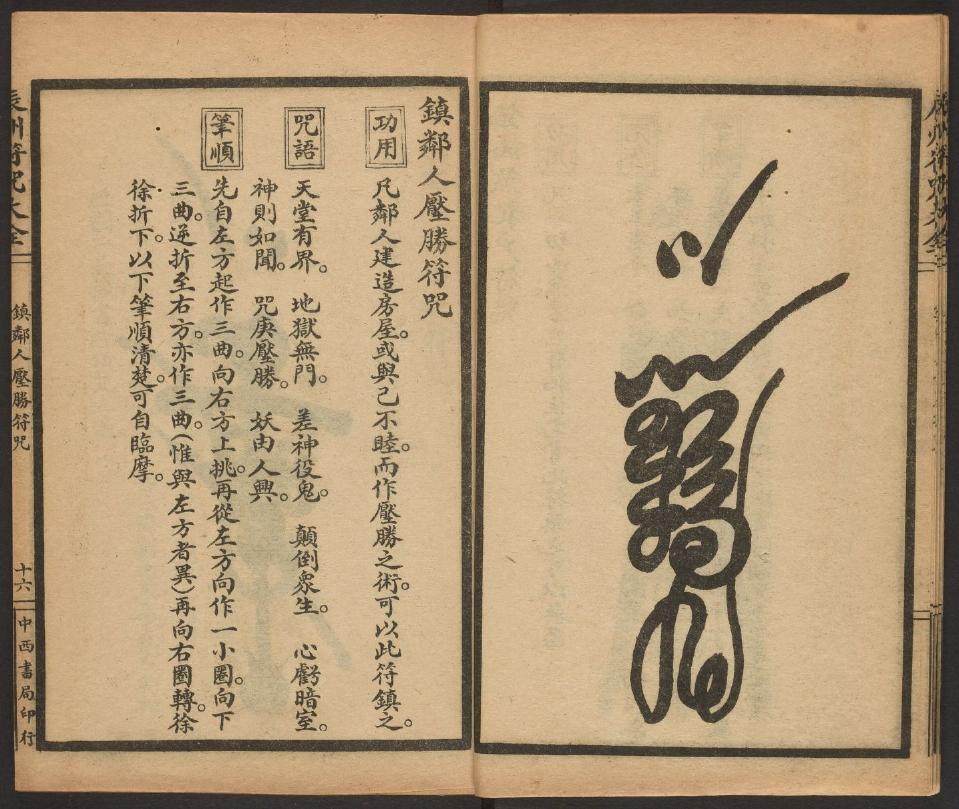 鎮鄰人壓勝符咒
功用
凡鄰人建造房屋。或與己不睦。而作壓勝之術。可以此符鎮之。
咒語
天堂有界。 地獄無門。 差神役鬼。 顛倒眾生。 心虧暗室。
神則如聞。 咒庚壓勝。 妖由人興。
筆順
先自左方起作三曲。向右方上挑。再從左方向作一小圈。向下
三曲。逆折至右方。亦作三曲。(惟與左方者異)再向右圈轉。徐
徐折下。以下筆順清楚。可自臨摩。
辰州符咒大全
鎮鄰人壓勝符咒
十六
中西書局印行